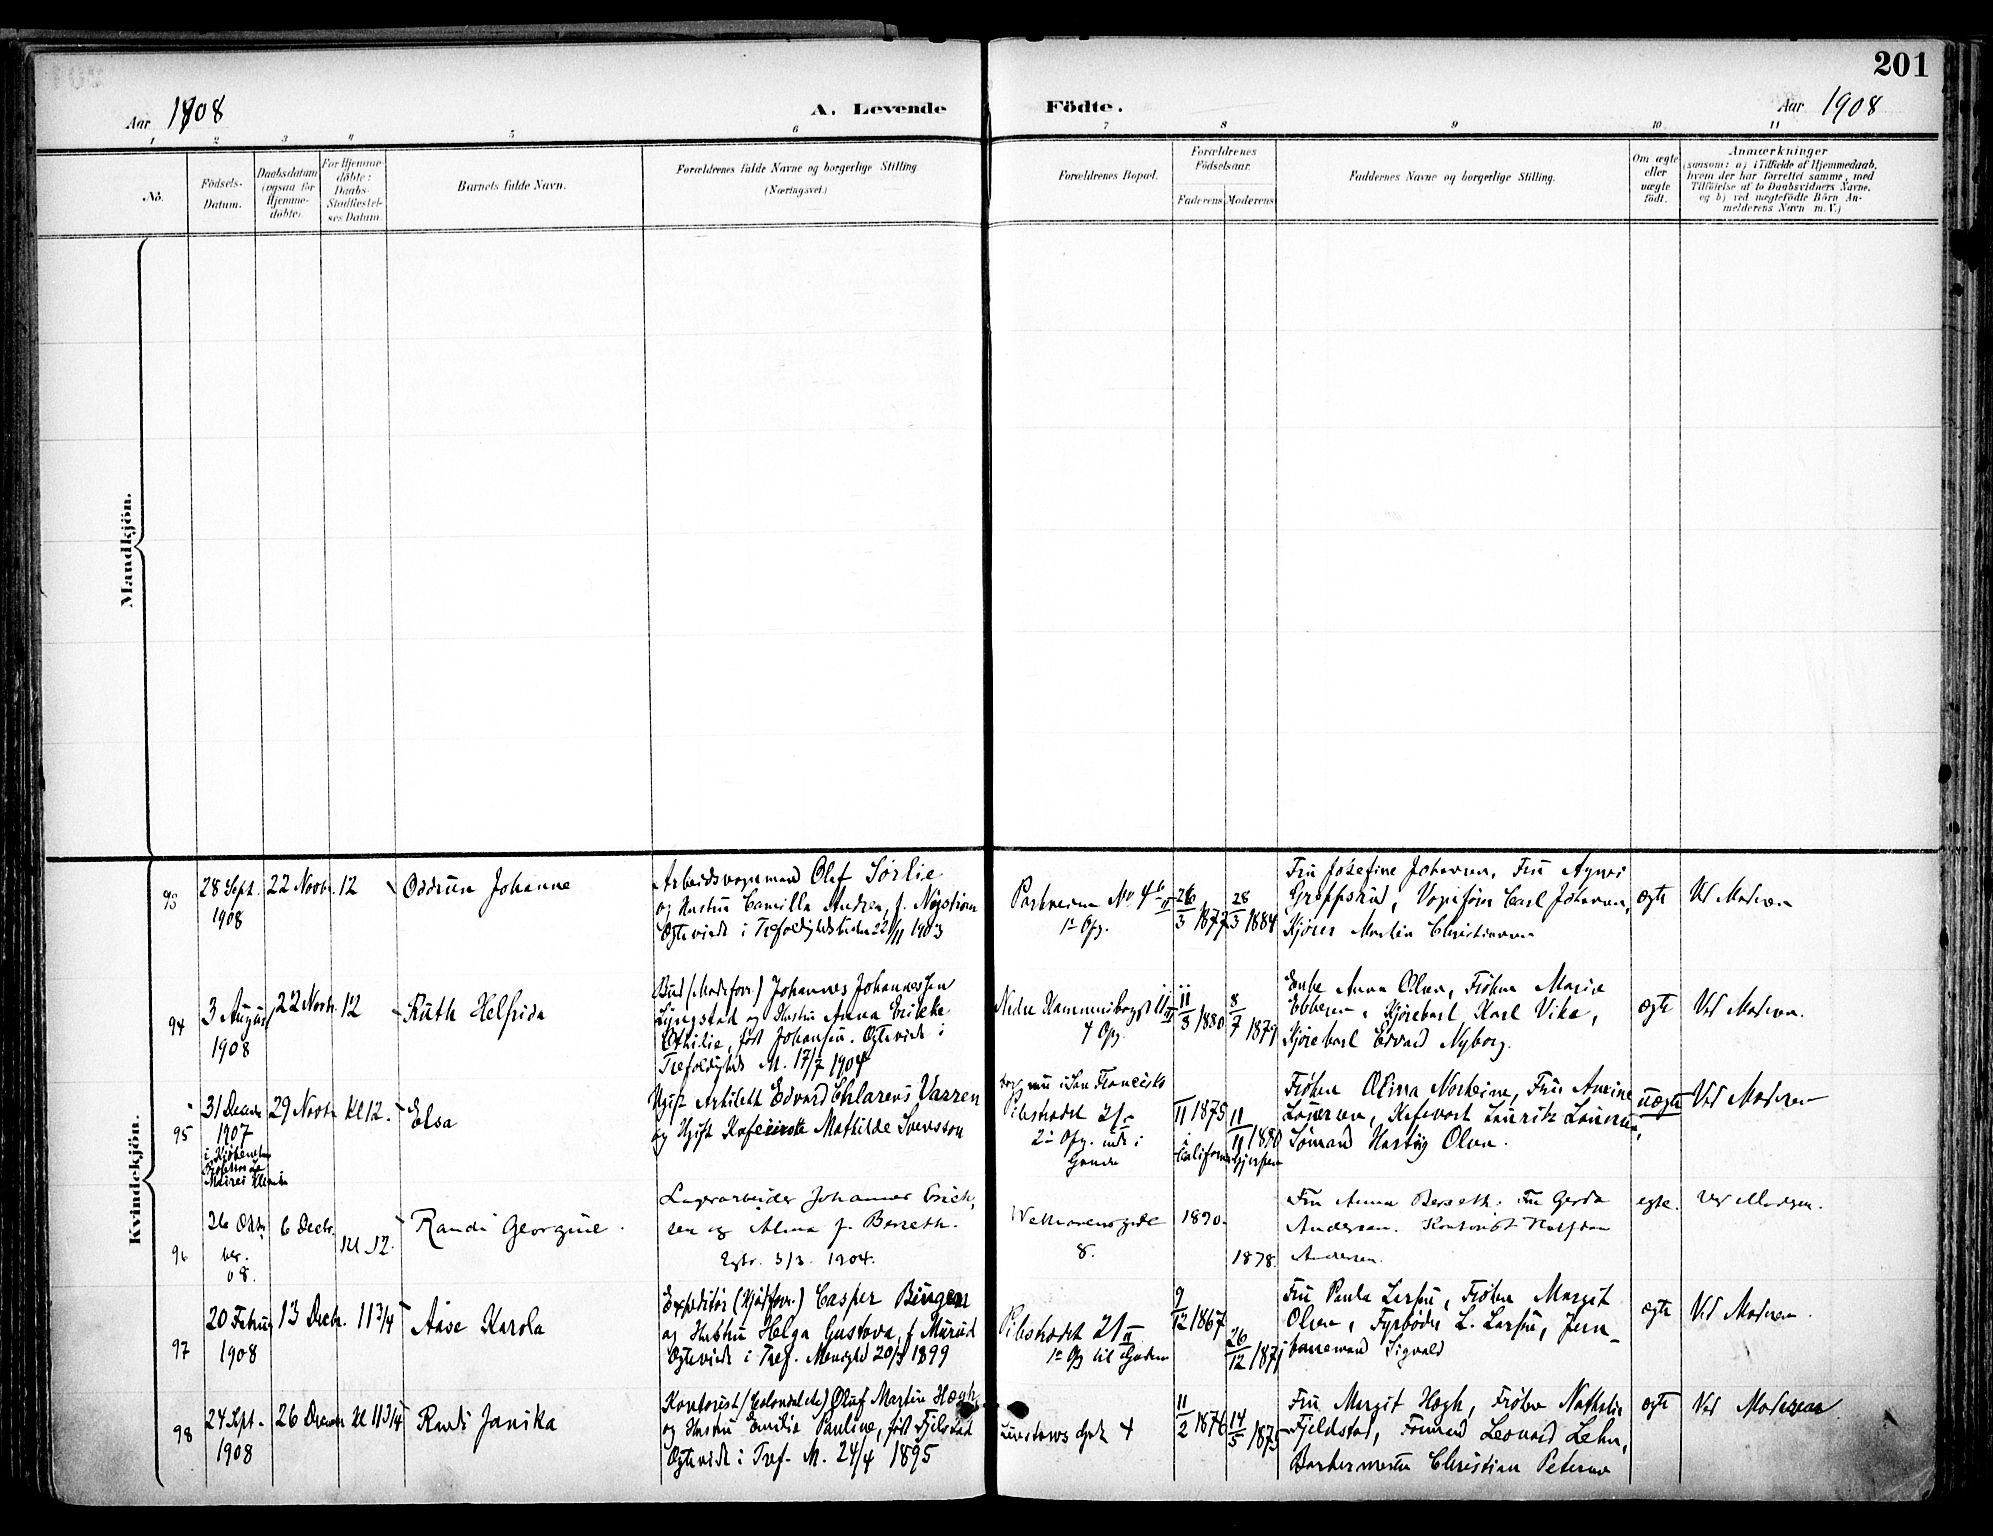 201
Aar 1908
A. Levende Födte.
Aar 1908
1 2 3 4 5 6 7 8 9 10 11
No.
Födsels-
Datum.
Daabsdatum
(ogsaa for
Hjemme-
døbte).
For Hjemme-
døbte:
Daabs-
Stadfæstel-
ses Datum.
Barnets fulde Navn.
Forældrenes fulde Navne og borgerlige Stilling.
(Næringsvei.)
Forældrenes Bopæl.
Forældrenes
Födselsaar.
Faderens Moderens
Faddernes Navne og borgerlige Stilling.
Om ægte
eller
uægte
født.
Anmærkninger
(saasom: a) i Tilfælde af Hjemmedaab,
hvem der har forrettet samme, med
Tilføielse af to Daabsvidners Navne,
og b) ved uægtefødte Börn An-
melderens Navn m. V.)
Mandkjön.
Kvindekjön.
93
28 Sept.
1908
22 Novbr.
12
Oddrun Johanne
Arbeidsvognmand Olaf Sørlie
og Hustru Camilla Andrea, f. Nystrøm
Ægteviet i Trefoldighedskirken 22/11 1903
1ste Opg.
26/3 1877
28/3 1884
Fru Josefine Johansen, Fru Agnes
Carl Johansen,
Kjører Martin Christiansen
ægte
Ved Moderen
94
3 August
1908
22 Novbr.
12
Ruth Helfrida
Bud (Modeforr.) Johannes Johannessen
Lyngstad og Hustru Anna Erikke
Othilie, født Johansen. Ægteviet i
Trefoldigheds M. 17/7 1904
Nedre Hammersborggt 11
4 Opg.
11/3 1880
8/7 1879
Enke Anna Olsen, Frøken Marie
Ebbesen, Kjørekarl Karl Vike,
Kjørekarl Edvard Nyborg.
ægte
Ved Moderen.
95
31 Decbr
1907
29 Novbr
Kl 12.
Elsa
Ugift Arkitekt Edvard Chlarens Varren
og Ugift Mathilde Svensson
bor nu i San Francisko
Pilestrædet 21
2den Opg. inde i
Gaarden
11 1875
i
11/11 1880
Frøken
Sømand Hartvig Olsen.
uægte
Ved Moderen
96
26 Okto
ber.
08.
6 Decbr.
Kl 12.
Randi Georgine.
Lagerarbeider Johannes Erich-
sen og Alma f. Berseth.
Egtv. 3/3 1904.
Welhavensgade
8.
1890
1878
Fru Anna Berseth. Fru Gerda
Andersen. Kontorist Halfdan
Andersen.
egte.
Ved Moderen.
97
20 Februar
1908
13 Decbr.
11 3/4
Aase Karola
Expeditør (Kjødforr.) Casper Bingen
og Hustru Helga Gustava, f. Murud
Ægteviet i Tref. Menighed 1899
Pilestrædet 21
1ste Opg til Gaarden
9/12 1867
26/12 1871
Fru Paula Larsen, Frøken Margit
Olsen, Fyrbøder L. Larsen, Jern-
banemand Sigvald
ægte
Ved Moderen.
98
24 Sept.
1908
26 Decbr
Kl 11 3/4
Randi Janika
Kontorist Oluf Martin Høgh
og Hustru Emilie Pauline, født Fjelstad
Ægteviet i Tref. M. 24/4 1895
4
11/2 1876
14/5 1875
Fru Margit Høgh, Frøken Nathalie
Fjeldstad, Leonard Lehn,
Barbermester Christian Petersen
ægte
Ved Moderen